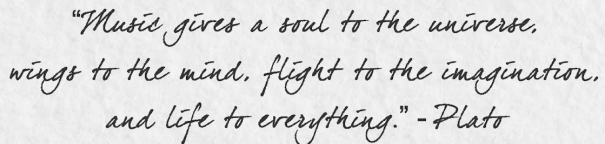 “Music gives a soul to the universe,
wings to the mind, flight to the imagination,
and life to everything.” - Plato